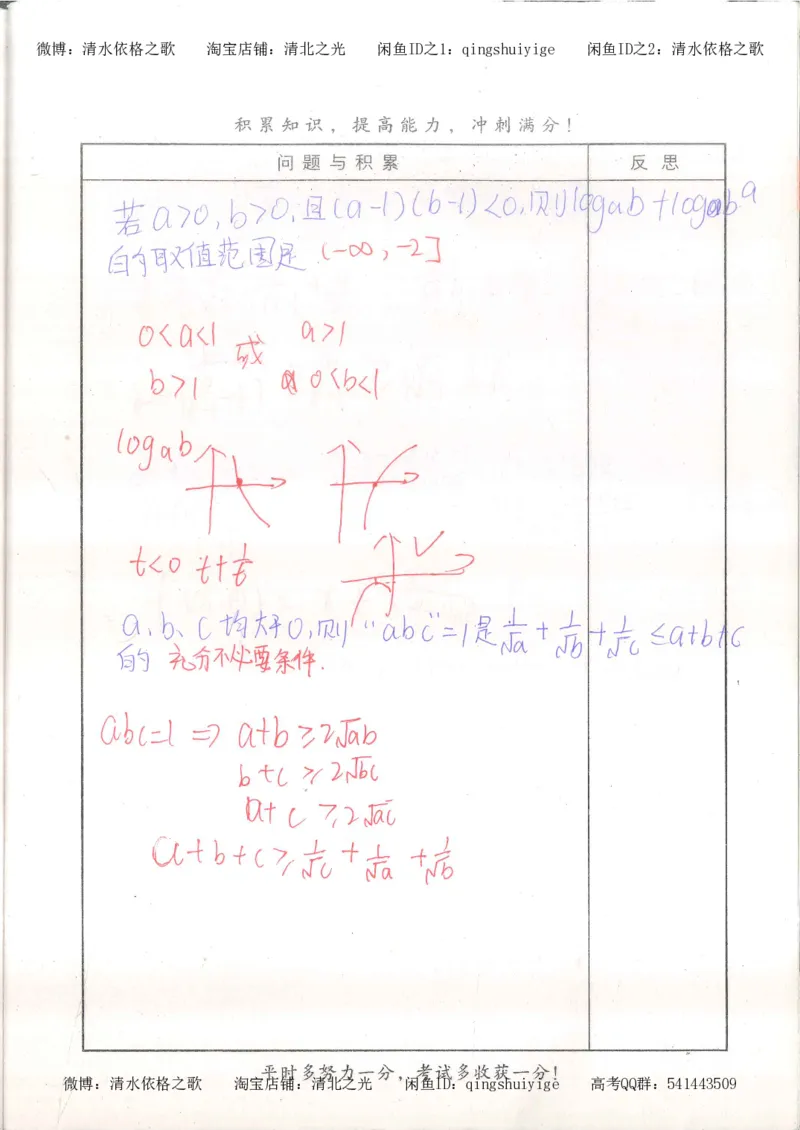 微博：清水依格之歌 淘宝店铺：清北之光 闲鱼ID之1：qingshuiyige 闲鱼ID之2：清水依格之歌
积累知识，提高能力，冲刺满分！
问题与积累 反思
若a>0,b>0,且(a-1)(b-1)<0,则logab+logba
的取值范围是 (-∞,-2]
0<a<1 或 a>1
b>1 0<b<1
logab
t<0 t+1/t
a、b、c均大于0,则“abc”=1是1/√a+1/√b+1/√c≤a+b+c
的 充分不必要条件.
abc=1 => a+b≥2√ab
b+c≥2√bc
a+c≥2√ac
a+b+c≥1/√c+1/√a+1/√b
平时多努力一分，考试多收获一分！
微博：清水依格之歌 淘宝店铺：清北之光 闲鱼ID：qingshuiyige 高考QQ群：541443509